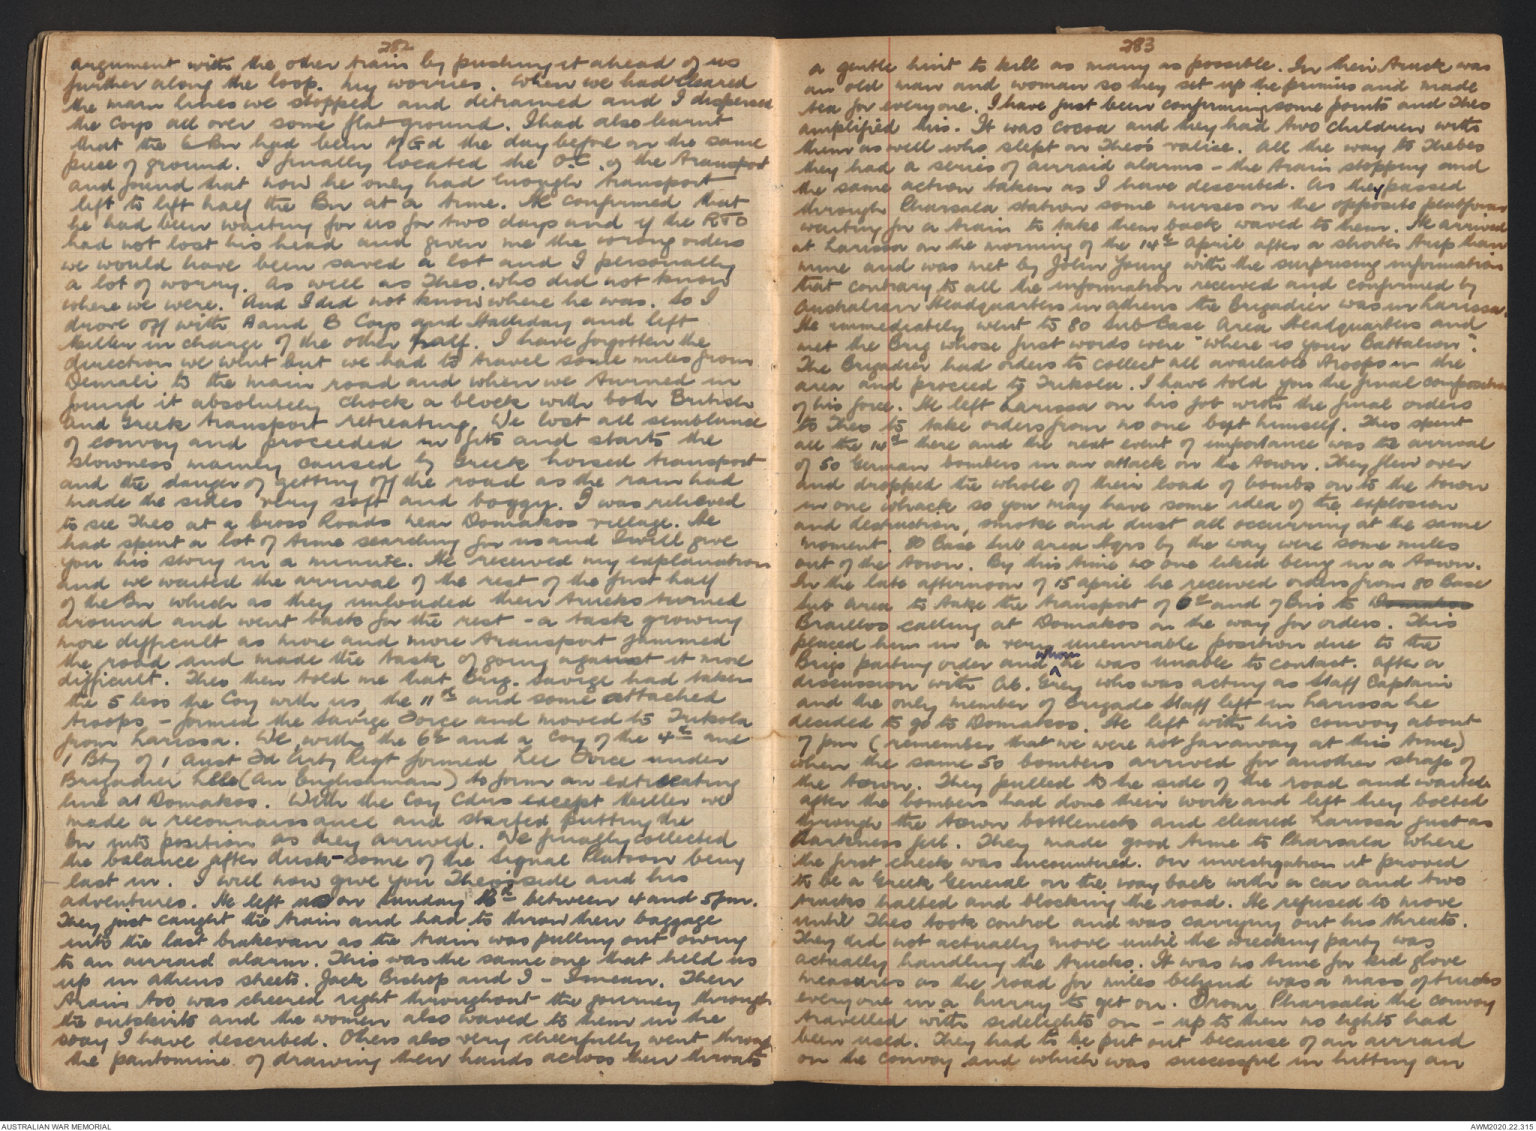 282
argument with the other train by pushing it ahead of us
further along the loop. My worries. When we had cleared
the main lines we stopped and detrained and I dispersed
the Coys all over some flat ground. I had also learnt
that the 6 Bn had been MGd the day before on the same
piece of ground. I finally located the O.C. of the transport
and found that now he only had enough transport
left to lift half the Bn at a time. He confirmed that
he had been waiting for us for two days and if the RTO
had not lost his head and given me the wrong orders
we would have been saved a lot and I personally
a lot of worry. As well as Theo. who did not know
where we were. And I did not know where he was. So I
drove off with A and B Coys and Halliday and left
Miller in charge of the other half. I have forgotten the
direction we went but we had to travel some miles from
Demali to the main road and when we turned in
found it absolutely chock a block with both British
and Greek transport retreating. We lost all semblance
of convoy and proceeded in fits and starts the
slowness mainly caused by Greek horsed transport
and the danger of getting off the road as the rain had
made the sides very soft and boggy. I was relieved
to see Theo at a Cross Roads near Domakos village. He
had spent a lot of time searching for us and I will give
you his story in a minute. He received my explanations
and we waited the arrival of the rest of the first half
of the Bn which as they unloaded their trucks turned
around and went back for the rest - a task growing
more difficult as more and more transport jammed
the road and made the task of going against it more
difficult. Theo then told me that Brig. Savige had taken
the 5 less the Coy with us, the 11th and some attached
troops - formed the Savige Force and moved to Trikola
from Larissa. We with the 6th and a Coy of the 4th and
1 Bty of 1 Aust Fd Arty Regt formed Lee Force under
Brigadier Lee (An Englishman) to form an extricating
line at Domakos. With the Coy Cdrs except Miller we
made a reconnaissance and started putting the
Bn into position as they arrived. We finally collected
the balance after dusk - some of the Signal Platoon being
last in. I will now give you Theo's side and his
adventures. He left us on Sunday 13th between 4 and 5pm.
They just caught the train and had to throw their baggage
into the last brakevan as the train was pulling out owing
to an airraid alarm. This was the same one that held us
up in Athens streets. Jack Bishop and I - I mean. Their
train too was cheered right throughout the journey through
the outskirts and the women also waved to them in the
way I have described. Others also very cheerfully went through
the pantomine of drawing their hands across their throats
283
a gentle hint to kill as many as possible. In their truck was
an old man and woman so they set up the primus and made
tea for everyone. I have just been confirming some points and Theo
amplified this. It was cocoa and they had two children with
them as well who slept on Theo's valise. All the way to Thebes
they had a series of airraid alarms - the train stopping and
the same action taken as I have described. As they passed
through Pharsala station some nurses on the opposite platform
waiting for a train to take them back waved to them. He arrived
at Larissa on the morning of the 14th April after a shorter trip than
mine and was met by John Young with the surprising information
that contrary to all the information received and confirmed by
Australian Headquarters in Athens the Brigadier was in Larissa.
He immediately went to 80 Sub Base Area Headquarters and
met the Brig whose first words were "where is your Battalion".
The Brigadier had orders to collect all available troops in the
area and proceed to Trikola. I have told you the final composition
of his force. He left Larissa on his job with the final orders
to Theo to take orders from no one bept himself. Theo spent
all the 14th there and the next event of importance was the arrival
of 50 German bombers in an attack on the town. They flew over
and dropped the whole of their load of bombs on to the town
in one whack so you may have some idea of the explosion
and destruction, smoke and dust all occurring at the same
moment. 80 Base Sub area Hqrs by the way were some miles
out of the town. By this time no one liked being in a town.
In the late afternoon of 15 April he received orders from 80 Base
Sub area to take the transport of 6th and 7 Bns to
Brallos calling at Domakos on the way for orders. This
placed him in a very unenviable position due to the
Brigs parting order and whom he was unable to contact. After a
discussion with Grey who was acting as Staff Captain
and the only member of Brigade Staff left in Larissa he
decided to go to Domakos. He left with his convoy about
7 pm (remember that we were not far away at this time)
when the same 50 bombers arrived for another strafe of
the town. They pulled to the side of the road and waited
after the bombers had done their work and left they bolted
through the town bottlenecks and cleared Larissa just as
darkness fell. They made good time to Pharsala where
the first check was encountered. On investigation it proved
to be a Greek General on the way back with a car and two
trucks halted and blocking the road. He refused to move
until Theo took control and was carrying out his threats.
They did not actually move until the wrecking party was
actually handling the trucks. It was no time for kid glove
measures as the road for miles behind was a mass of trucks
everyone in a hurry to get on. From Pharsala the convoy
travelled with sidelights on - up to then no lights had
been used. They had to be put out because of an airraid
on the convoy and which was successful in hitting an
AUSTRALIAN WAR MEMORIAL
AWM2020.22.315